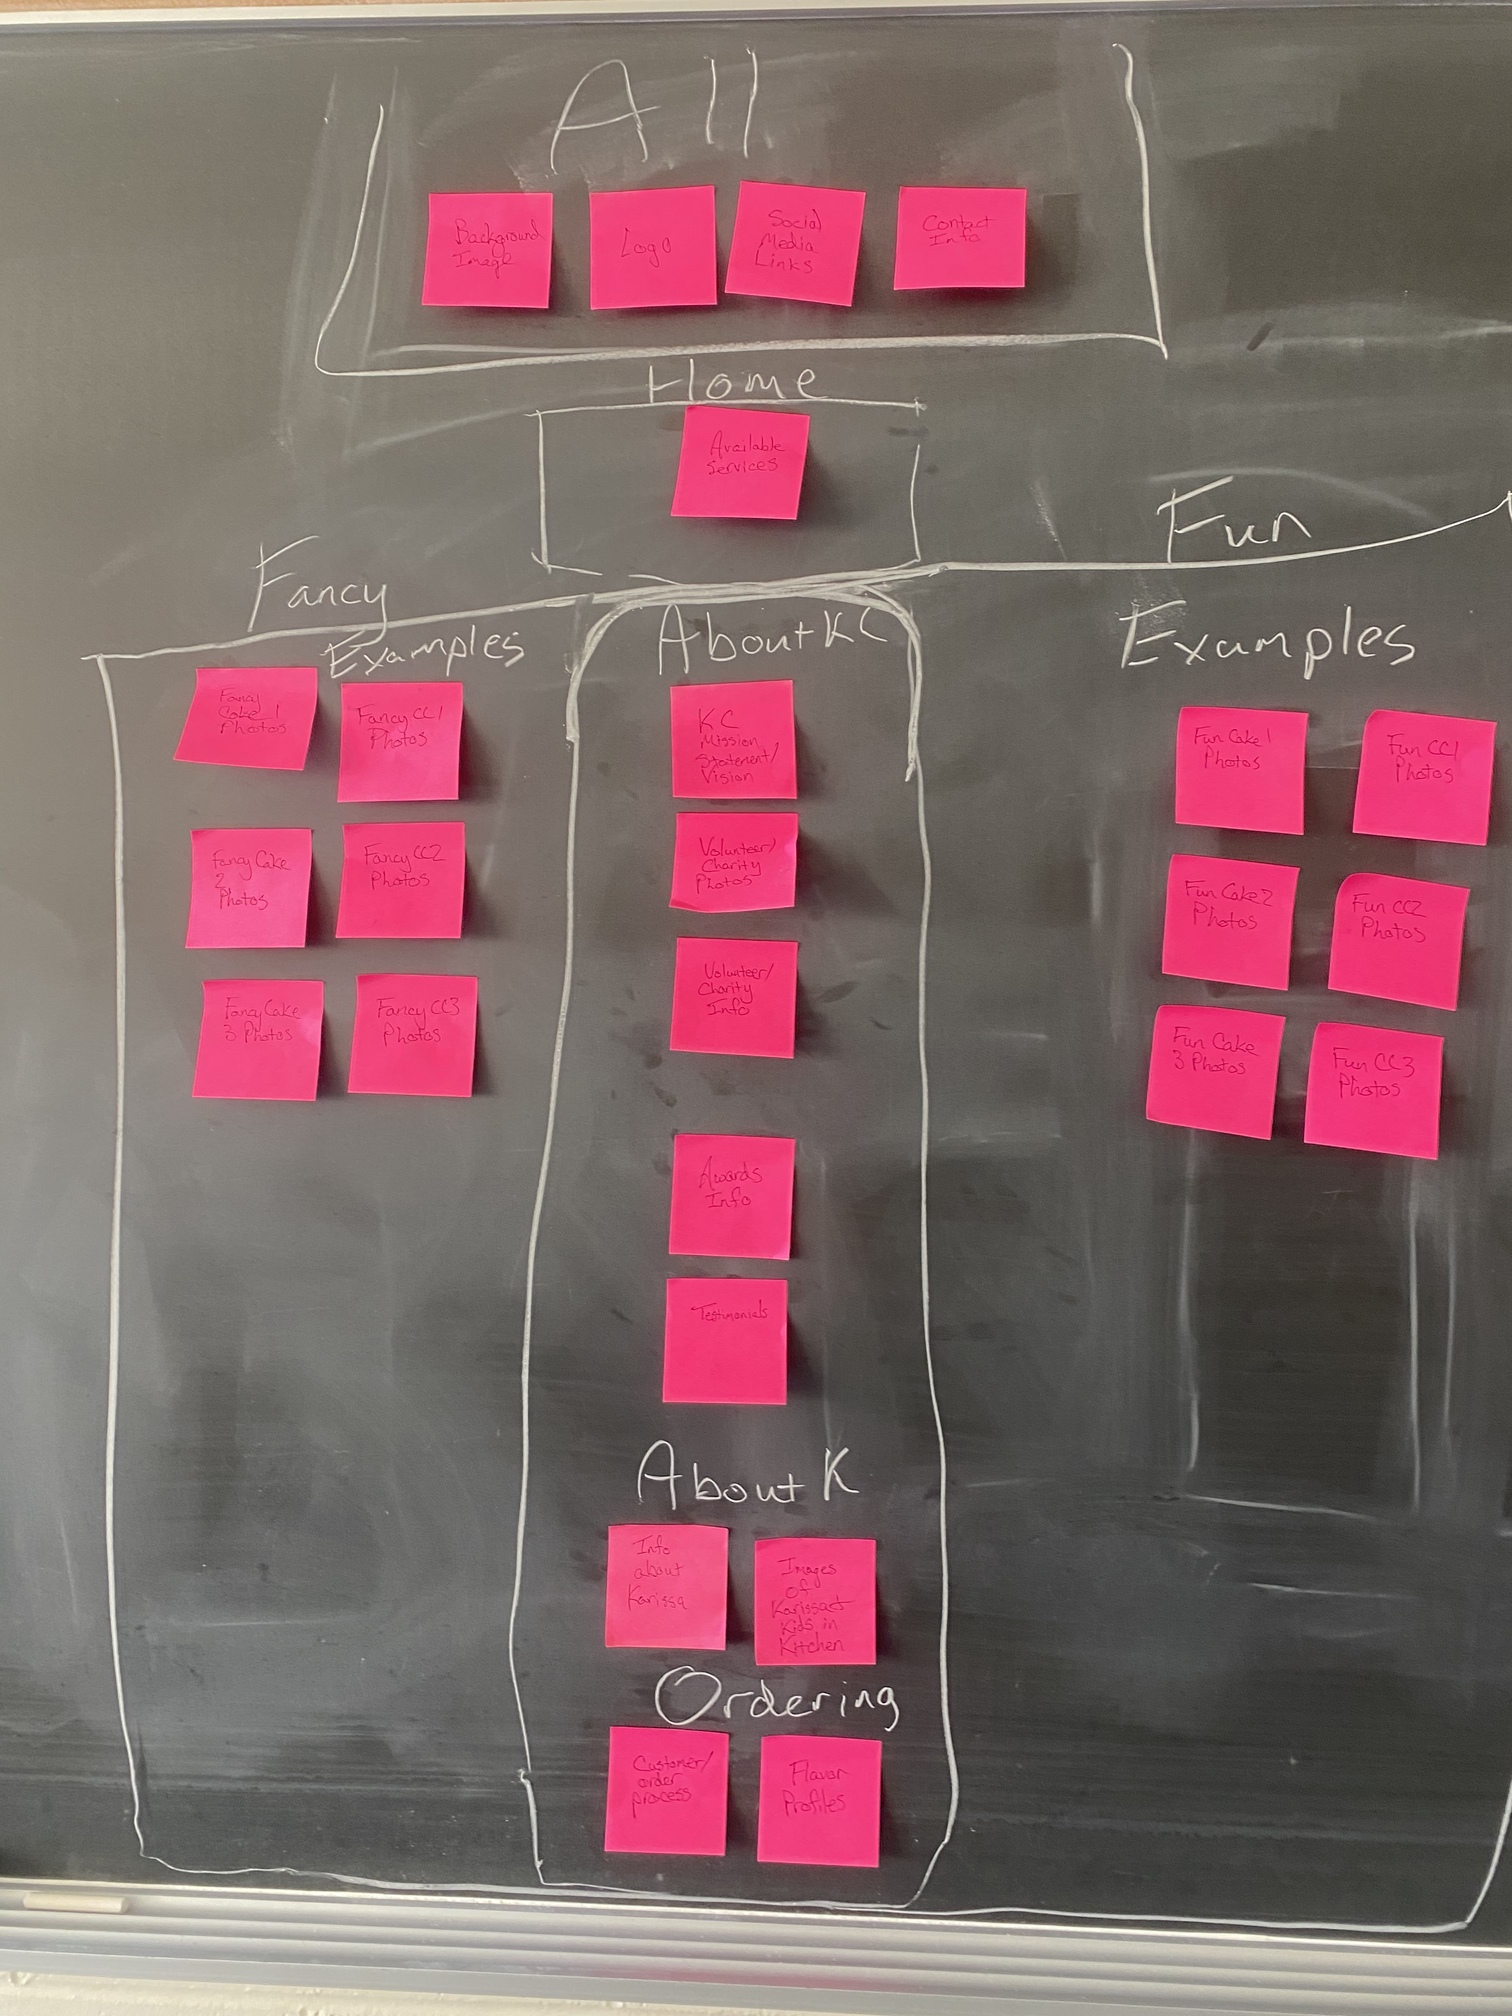 All
Background
Image
Logo
Social
Media
Links
Contact
Info
Home
Available
Services
Fancy
Fun
Examples
Fancy
Cake 1
Photos
Fancy CC1
Photos
Fancy Cake
2
Photos
Fancy CC2
Photos
Fancy Cake
3 Photos
Fancy CC3
Photos
About KC
KC
Mission
Statement/
Vision
Volunteer/
Charity
Photos
Volunteer/
Charity
Info
Awards
Info
Testimonials
About K
Info
about
Karissa
Images
of
Karissa+
Kids in
Kitchen
Ordering
Customer/
order
process
Flavor
Profiles
Examples
Fun Cake 1
Photos
Fun CC1
Photos
Fun Cake 2
Photos
Fun CC2
Photos
Fun Cake
3 Photos
Fun CC3
Photos